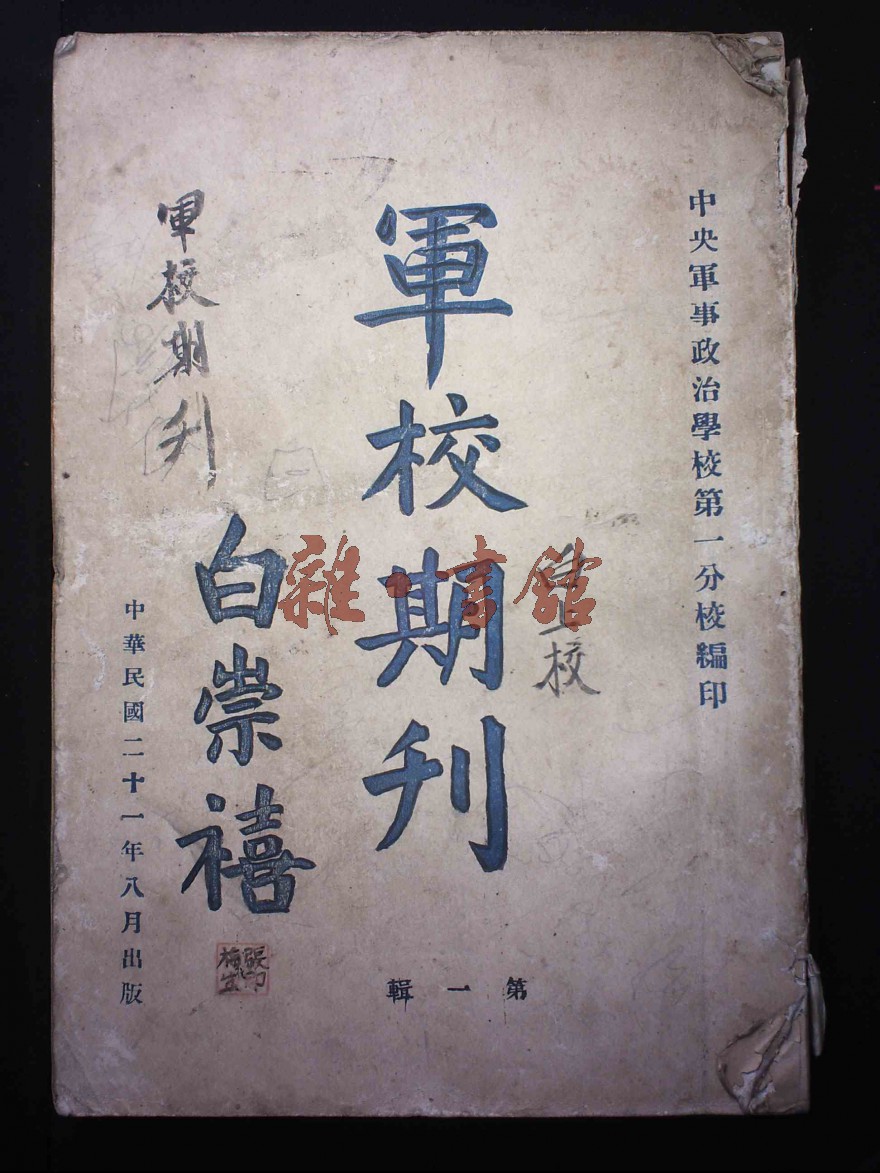 中央軍事政治學校第一分校編印
軍校期刊
第一輯
白崇禧
中華民國二十一年八月出版
軍校期刊
校
雜·書館